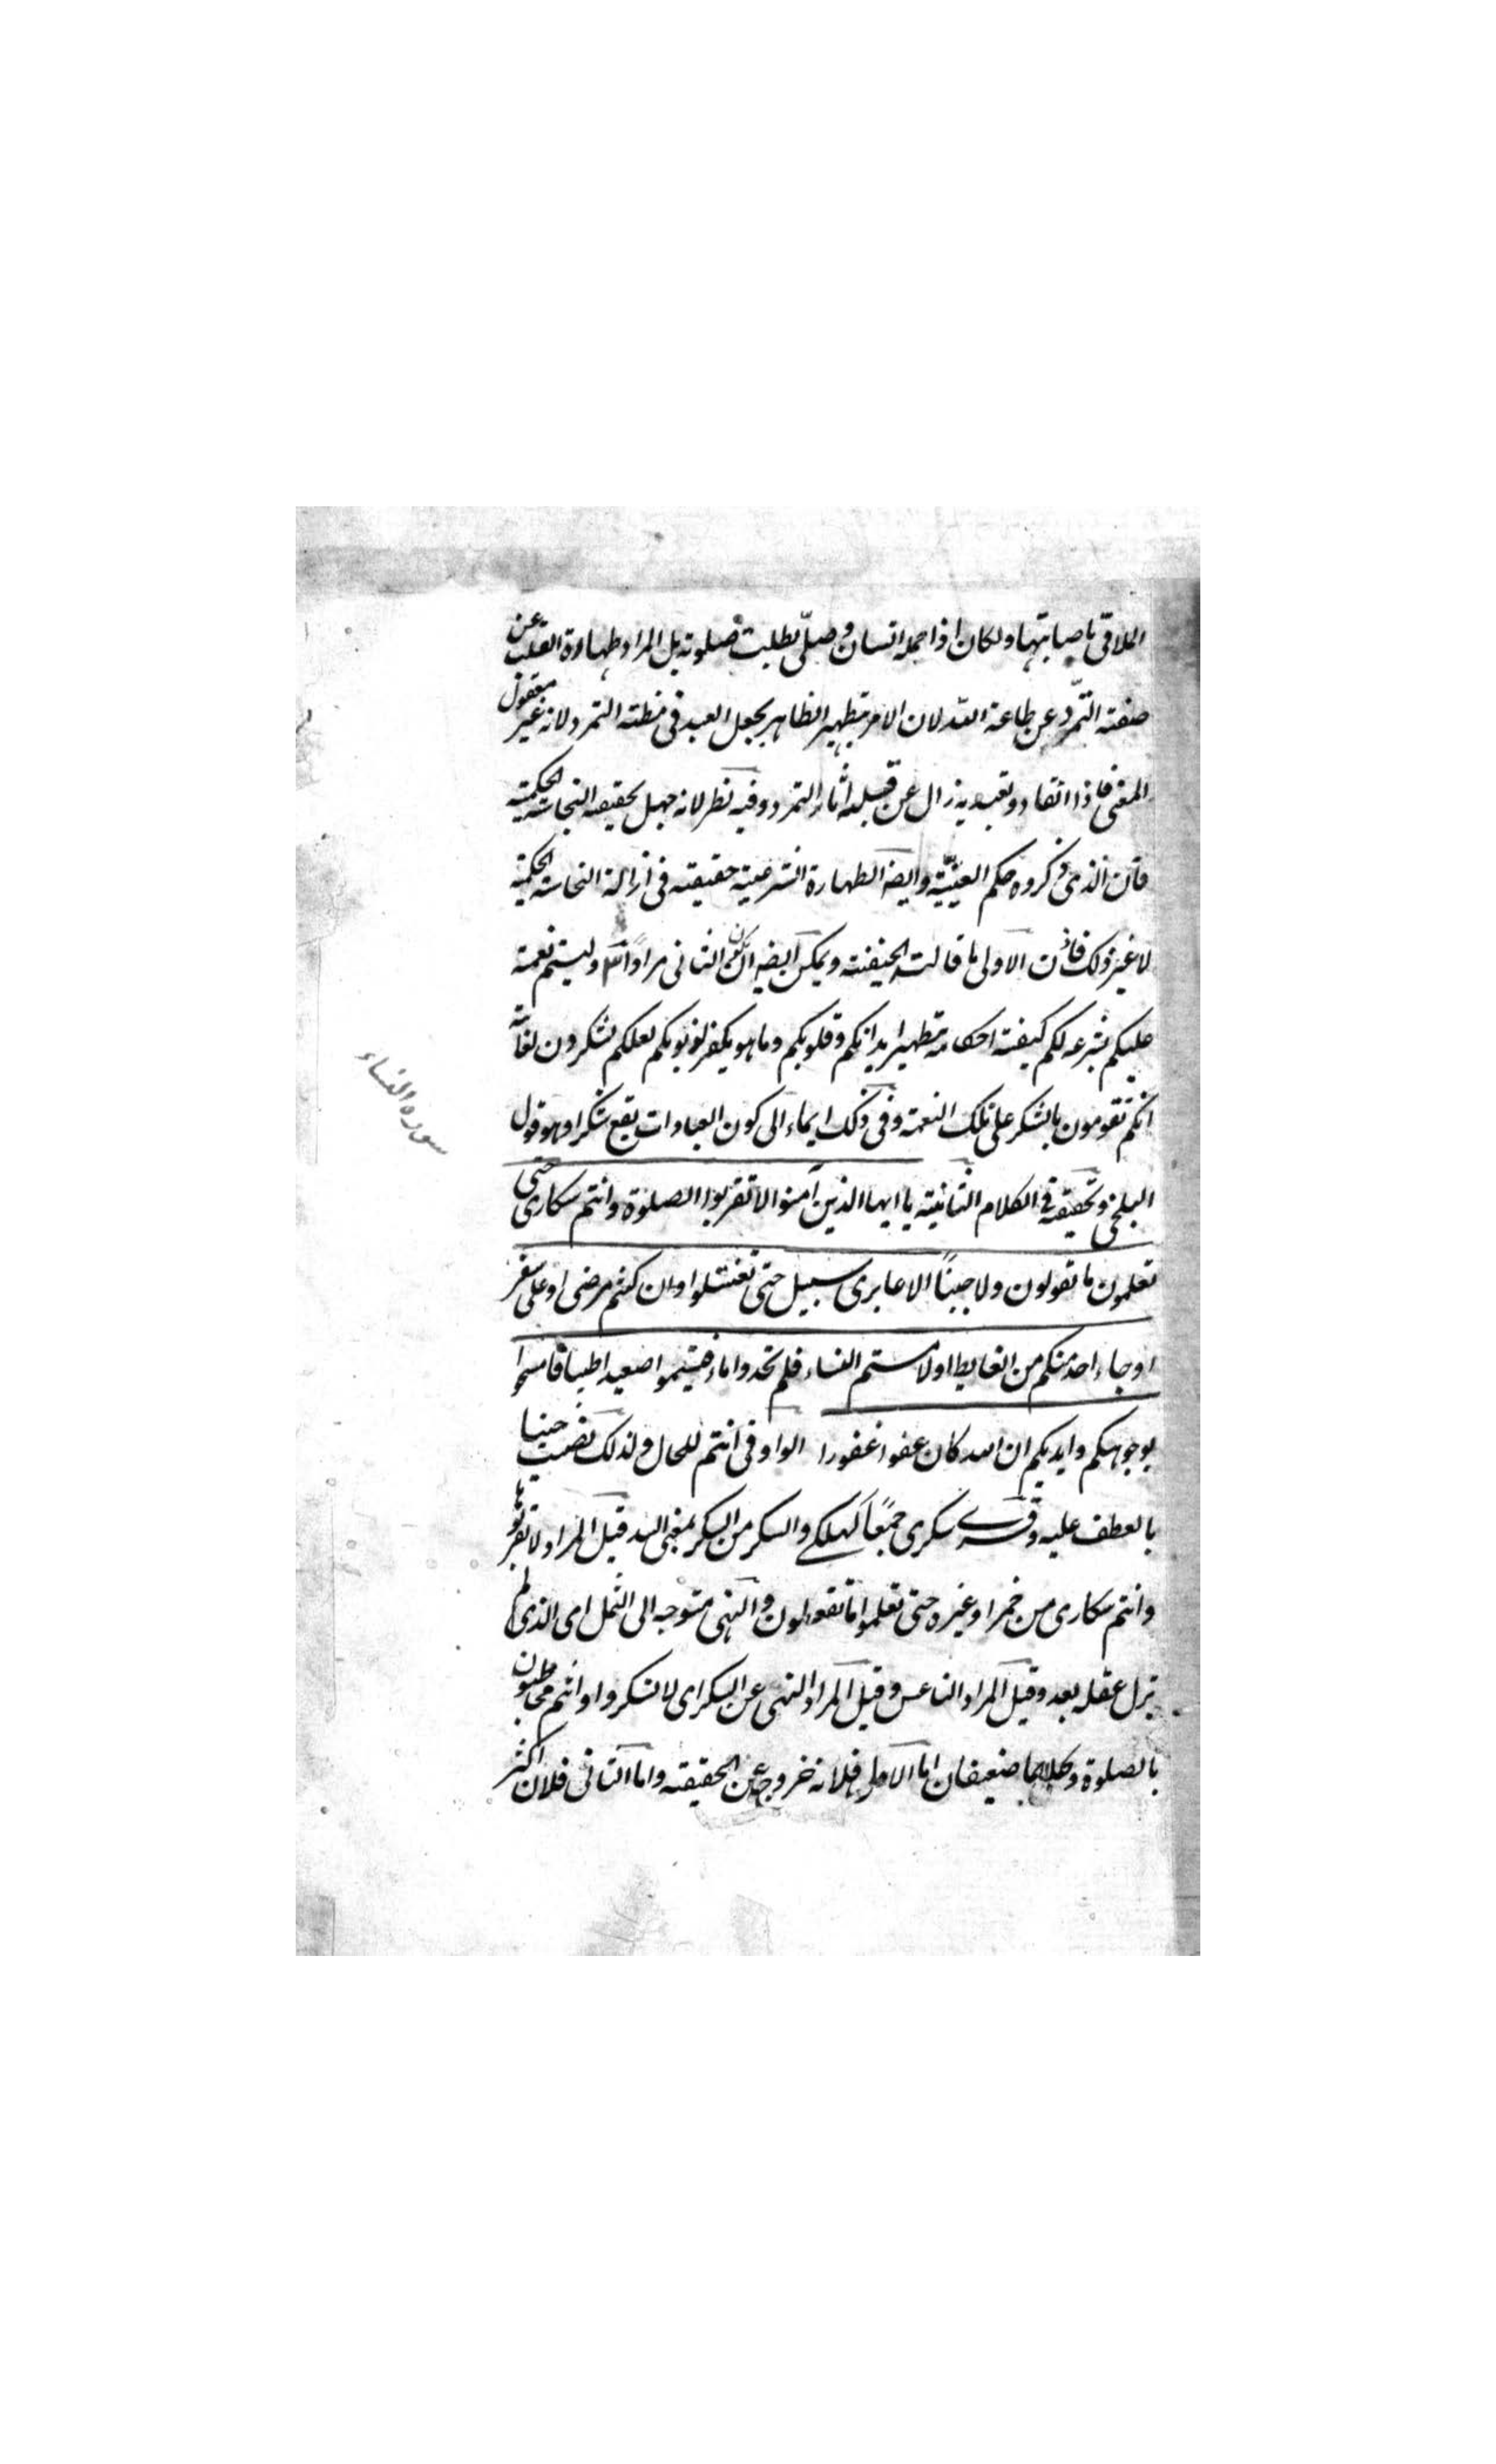 الملاقی باصابتها ولکان اذا حمله انسان وصلّی بطلت صلوته بل المراد طهارة القلب عن
صفته التمرّد عن طاعة الله لان الامر بتطهیر الظاهر یجعل العبد فی مظنته التمرد لانه غیر معقول
المعنی فاذا انقاد وتعبد به زال عن قبله اثار التمرد وفیه نظر لانه جهل بحقیقه النجاسته الحکمیته
فان الذی ذکروه حکم العینیّة وایضه الطهارة الشرعیته حقیقته فی ازالة النجاسته الحکمیة
لا غیر ذلک فاذن الاولی ما قالت الحنیفته ویمکن ایضه ان یکون الثانی مراداً ولیتم نعمته
علیکم بشرعه لکم کیفته احکامه بتطهیر ابدانکم وقلوبکم وما هو یکفر لذنوبکم لعلکم تشکرون لغایته
انکم تقومون بالشکر علی تلک النعمة وفی ذلک ایماء الی کون العبادات یقع شکرا وهو قول
البلخی وتحقیقه فی الکلام الثانیته یا ایها الذین آمنوا لا تقربوا الصلوة وانتم سکاری حتی
تعلمون ما تقولون ولا جنباً الا عابری سبیل حتی تغتسلوا وان کنتم مرضی او علی سفر
او جاء احد منکم من الغایط او لامستم النساء فلم تجدوا ماء فتیمموا صعیدا طیبا فامسحوا
بوجوهکم وایدیکم ان الله کان عفوا غفورا الواو فی انتم للحال ولذلک نصب جنبا
بالعطف علیه وقرے سکری جمعاً کهلکے والسکر من السکر بمعنی السد قیل المراد لا تقربوها
وانتم سکاری من خمر او غیره حتی تعلموا ما تقولون والنهی متوجه الی الثمل ای الذی لم
یزل عقله بعد وقیل المراد الناعس وقیل المراد النهی عن السکر ای لا تسکروا وانتم مخاطبون
بالصلوة وکلاهما ضعیفان اما الاول فلانه خروج عن الحقیقته واما الثانی فلان اکثر
سوره النساء